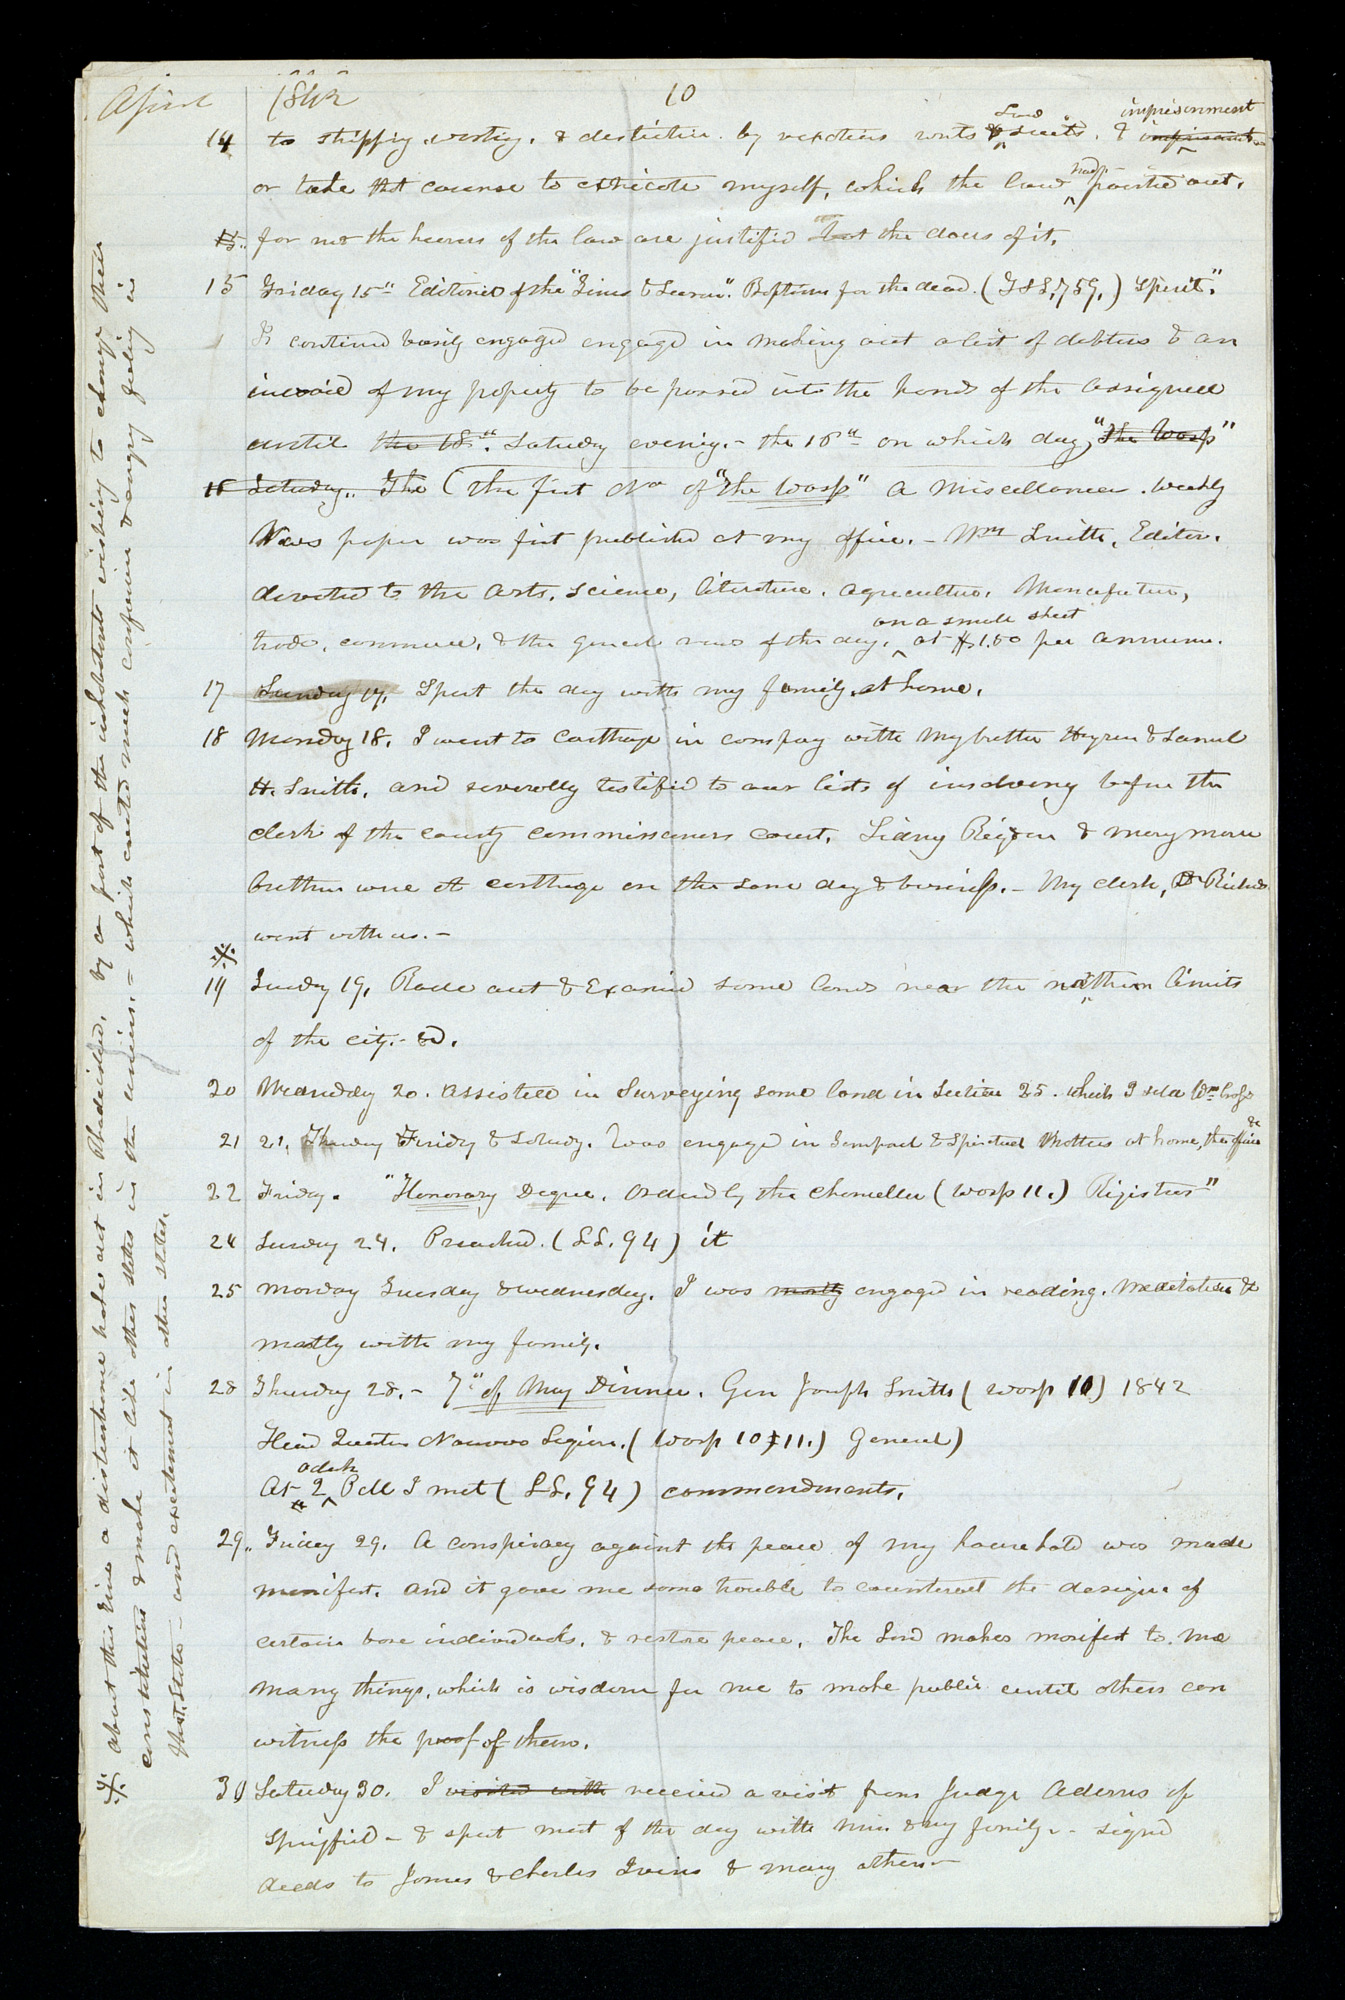 April 1842 10
14 to stripping wasting, & destruction by vexatious writs & Law suits, & imprisonment
or take that course to extricate myself, which the law had pointed out.
15 for not the hearers of the law are justified but the doers of it.
15 Friday 15" Editorial of the "Times & Season". Baptism for the dead. (T&S, 759,) Spirit."
I continued busily engaged engaged in making out a list of debtors & an
invoice of my property to be passed into the hands of the assignee
until the 18th. Saturday evening.- the 16th on which day, "The Wasp"
16 Saturday.. The (the first No of "the Wasp" a miscellaneous weekly
News paper was first published at my office.- Wm Smith, Editor.
devoted to the arts, Science, literature, agriculture, Manufacture,
trade, commerce, & the general news of the day, on a small sheet at $1.50 per annum.
17 Sunday 17. Spent the day with my family at home.
18 Monday 18. I went to Carthage in company with My brother Hyrum & Samuel
H. Smith, and severally testified to our lists of insolvency before the
clerk of the county commissioners court. Sidny Rigdon & many more
brethren were at carthage on the same day & business.- My clerk, Dr Richards
went with us.-
※
19 Tuesday 19, Rode out & Examined some lands near the northern limits
of the city.- &c.
20 Wednesday 20. assisted in Surveying some land in Section 25. which I sold Wm Cross
21 21. Thursday Friday & Saturday. Was engaged in Temporal & Spiritual Matters at home, the office &c
22 Friday. "Honorary Degree. Ordered by the Chancellor (Wasp 11.) Registrar"
24 Sunday 24. Preached. (L.L. 94) it
25 Monday Tuesday & wednesday. I was mostly engaged in reading. Meditation &
mostly with my family.
28 Thursday 28.- 7" of May Dinner. Gen Joseph Smith (Wasp 10) 1842
Head Quarters Nauvoo Legion. (Wasp 10 & 11.) General)
At 2 oclock P.M I met (L.L. 94) commandments.
29.. Friday 29. A conspiracy against the peace of my household was made
manifest. and it gave me some trouble to counteract the design of
certain base individuals, & restore peace. The Lord makes manifest to me
many things, which is wisdom for me to make public until others can
witness the proof of them.
30 Saturday 30. I visited with received a visit from Judge Adams of
Springfield - & spent most of the day with him & my family - signed
deeds to James & Charles Ivins & many others-
※ about this time a disturbance broke out in Rhodeisland, by a part of the inhabitants wishing to change their
constitution & make it like other states in the union.- which created much confusion & angry feeling in
that State - and excitement in other states.